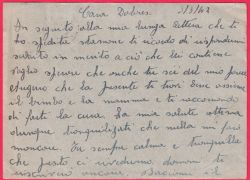 Cara Dolores. 1/3/42
In seguito alla mia lunga lettera che ti
ho spedito stamane ti ricordo di rispondermi
subito in merito a ciò che lei contiene
voglio sperare che anche tu sei del mio
che la presente ti trovi bene assieme
il bimbo e la mamma e ti raccomando
di farti la cura. La mia salute ottima
dunque tranquilizzati che nulla mi fara
mancare. Sii sempre calma e tranquilla
che presto ci rivedremo, domani ti
scriverò ancora. Baciami il